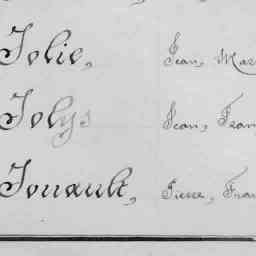 Jolie, Jean, Mar
Jolys Jean, Fran
Jouault, Pierre, Fran